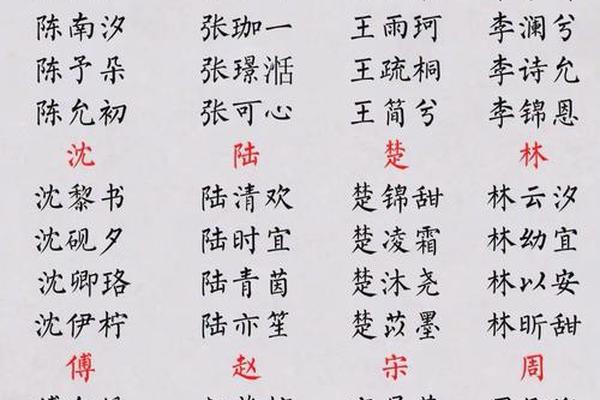 陈南汐 张珈一 王雨珂 李澜兮
陈予朵 张璟湉 王疏桐 李诗允
陈允初 张可心 王简兮 李锦恩
沈 陆 楚 林
沈黎书 陆清欢 楚锦甜 林云汐
沈砚夕 陆时宜 楚凌霜 林幼宜
沈卿珞 陆青茵 楚沐尧 林以安
沈伊柠 陆亦笙 楚苡墨 林昕甜
傅 赵 宋 周